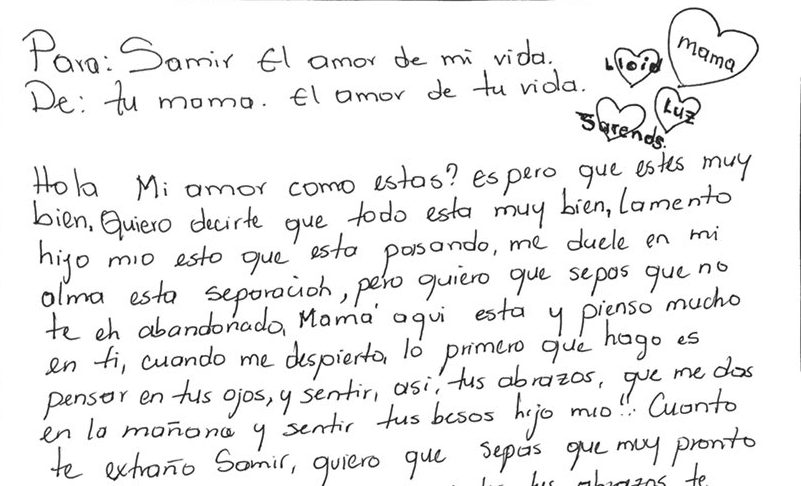 Para: Samir El amor de mi vida.
De: tu mama. El amor de tu vida.
mama
Lloid
Luz
Sarends.
Hola Mi amor como estas? espero que estes muy
bien. Quiero decirte que todo esta muy bien, Lamento
hijo mio esto que esta pasando, me duele en mi
alma esta separación, pero quiero que sepas que no
te eh abandonado, Mamá aqui esta y pienso mucho
en ti, cuando me despierto, lo primero que hago es
pensar en tus ojos, y sentir, asi, tus abrazos, que me das
en la mañana y sentir tus besos hijo mio!! Cuanto
te extraño Samir, quiero que sepas que muy pronto
tus abrazos te